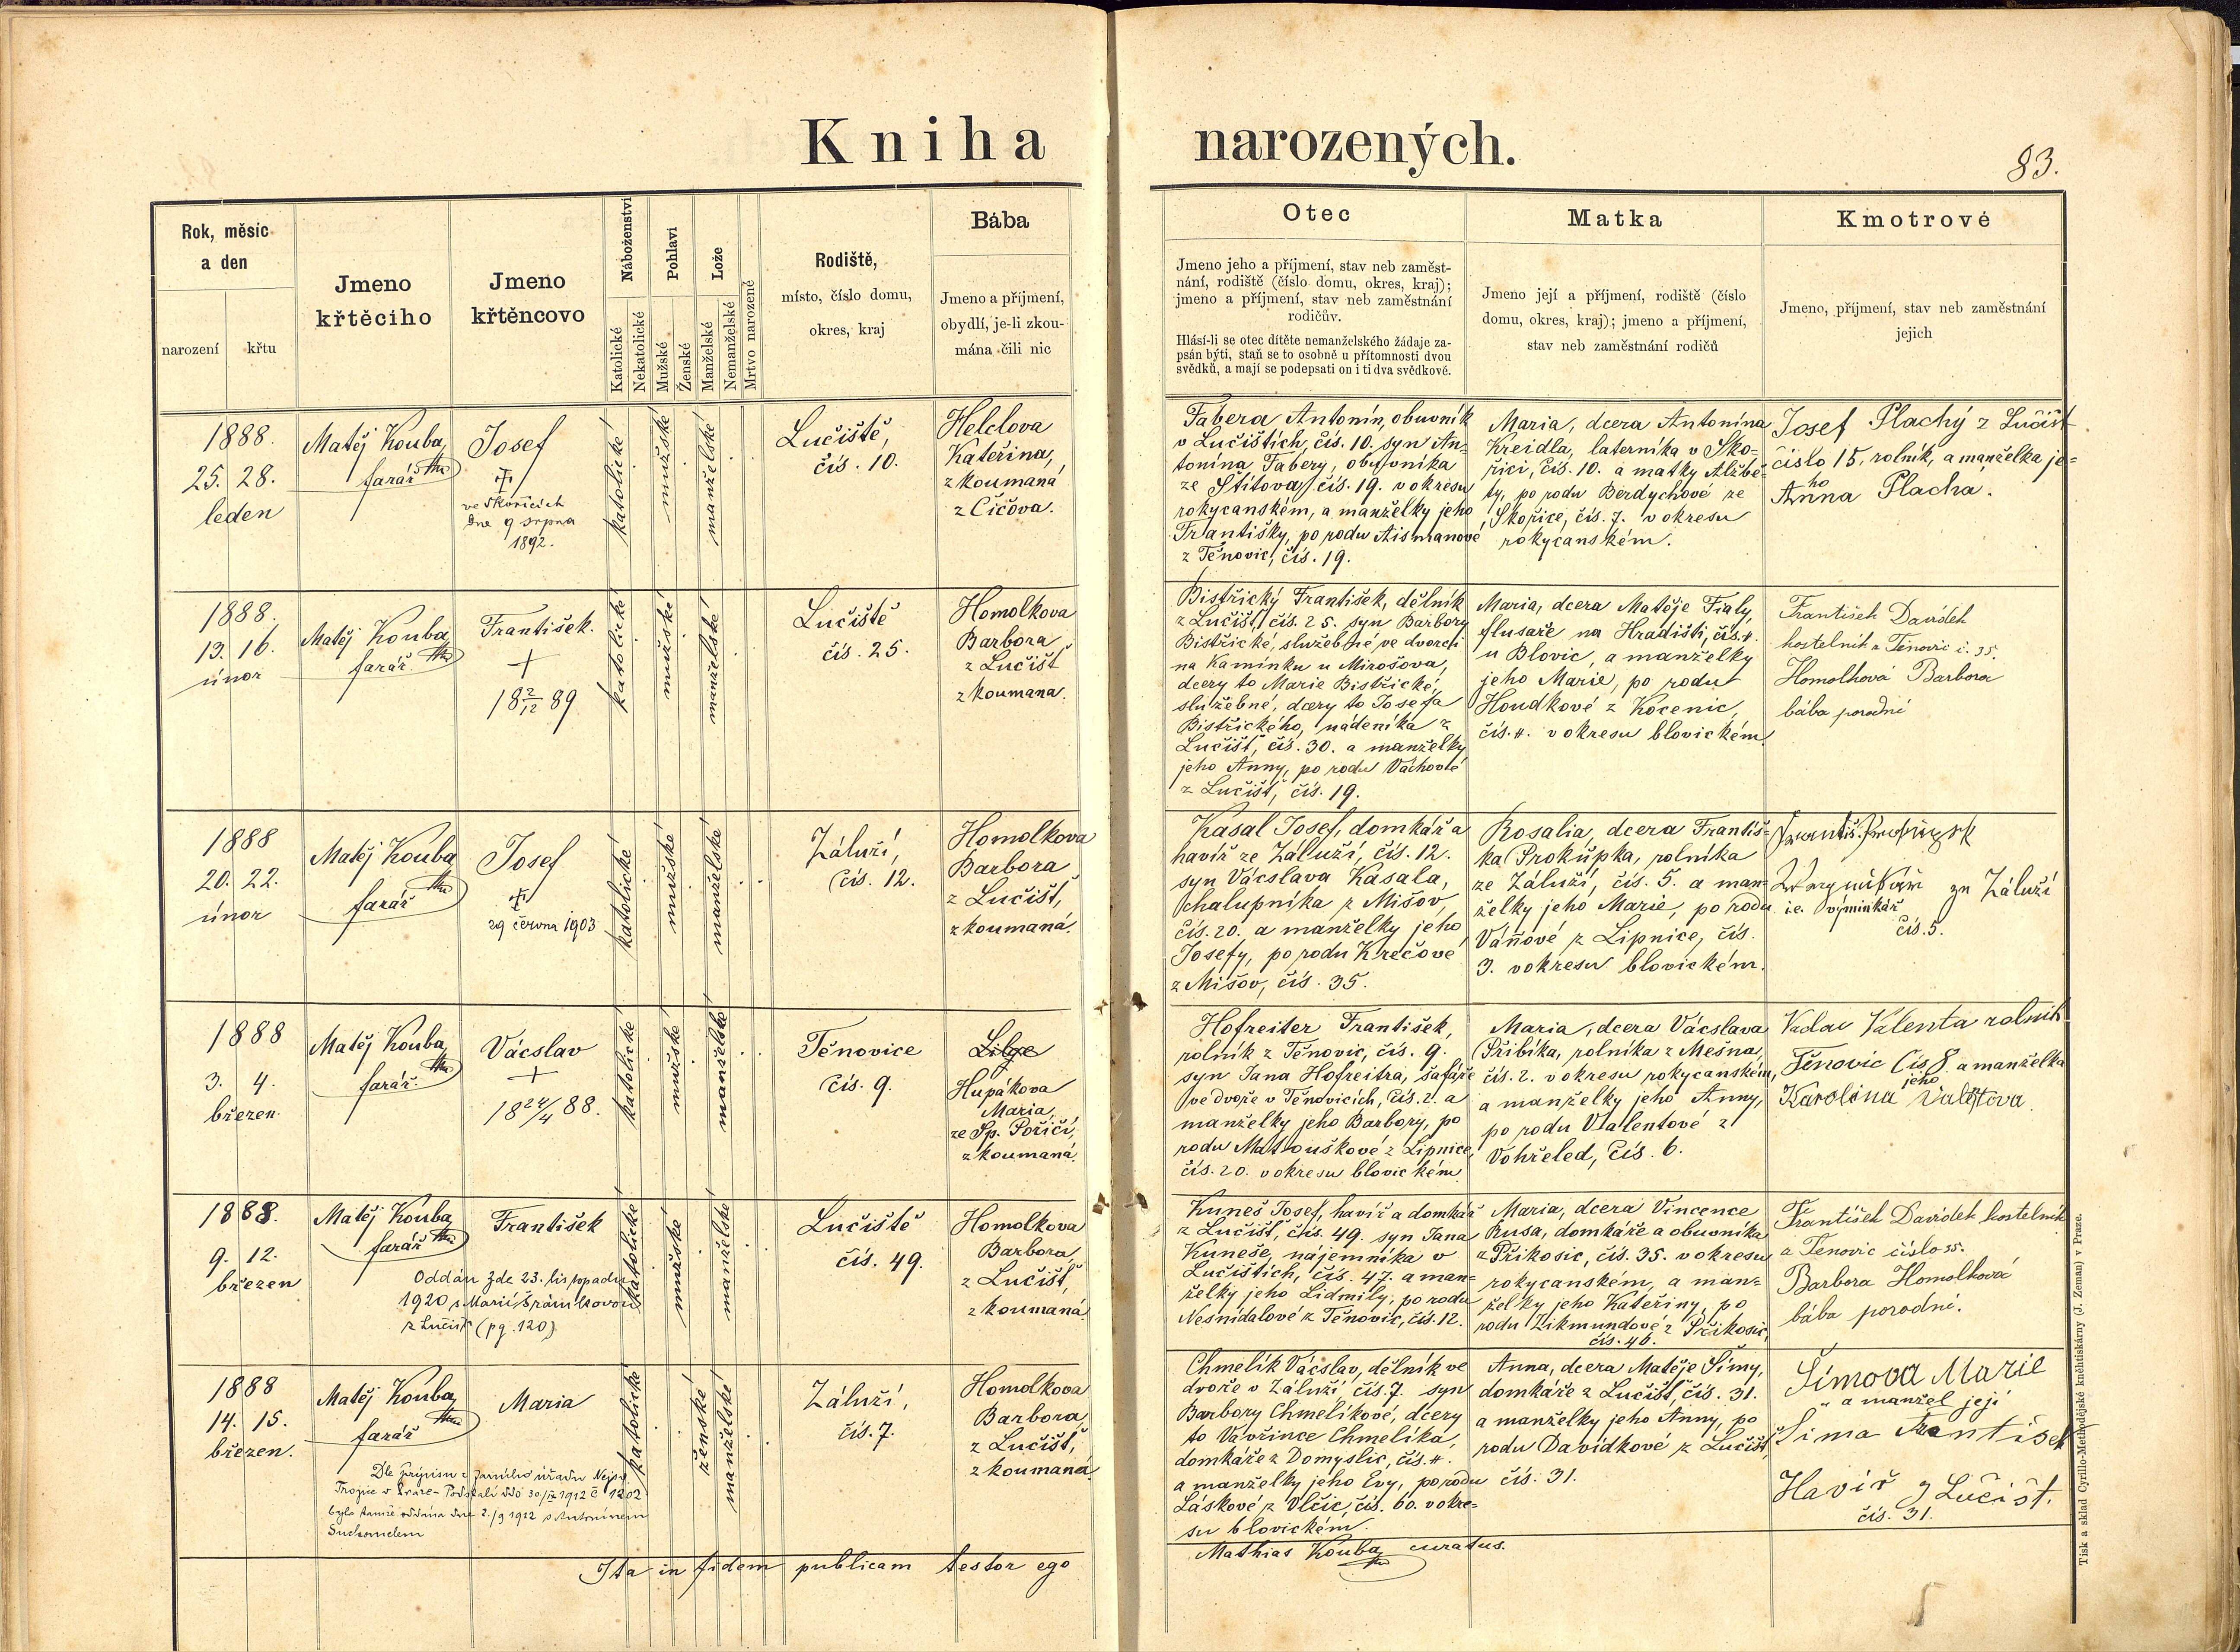 Kniha narozených.
83.
Rok, měsíc
a den
narození
křtu
Jmeno
křtěcího
Jmeno
křtěncovo
Náboženství
Katolické
Nekatolické
Pohlaví
Mužské
Ženské
Lože
Manželské
Nemanželské
Mrtvo narozené
Rodiště,
místo, číslo domu,
okres, kraj
Bába
Jmeno a příjmení,
obydlí, je-li zkou-
mána čili nic
Otec
Jmeno jeho a příjmení, stav neb zaměst-
nání, rodiště (číslo domu, okres, kraj);
jmeno a příjmení, stav neb zaměstnání
rodičův.
Hlásí-li se otec dítěte nemanželského žádaje za-
psán býti, staň se to osobně u přítomnosti dvou
svědků, a mají se podepsati on i ti dva svědkové.
Matka
Jmeno její a příjmení, rodiště (číslo
domu, okres, kraj); jmeno a příjmení,
stav neb zaměstnání rodičů
Kmotrové
Jmeno, příjmení, stav neb zaměstnání
jejich
1888.
25. 28.
leden
Matěj Kouba,
farář
Josef
ve Skořicích
dne 9 srpna
1892.
katolické
mužské
manželské
Lučiště,
čís. 10.
Helclova
Kateřina,
zkoumaná
z Čičova.
Fabera Antonín, obuvník
v Lučištích, čís. 10. syn An-
tonína Fabery, obuvníka
ze Štítova, čís. 19. v okresu
rokycanském, a manželky jeho
Františky, po rodu Aismanové
z Těnovic, čís. 19.
Maria, dcera Antonína
Kreidla, laterníka v Sko-
řici, čís. 10. a matky Alžbě-
ty, po rodu Berdychové ze
Skořice, čís. 7. v okresu
rokycanském.
Josef Plachý z Lučišť
číslo 15, rolník, a manželka je-
ho
Anna Placha.
1888.
13. 16.
únor
Matěj Kouba,
farář.
František.
+
18 2/12 89
katolické
mužské
manželské
Lučiště
čís. 25.
Homolkova
Barbora
z Lučišť
zkoumana.
Bistřický František, dělník
z Lučišť, čís. 25. syn Barbory
Bistřické, služebné ve dvorci
na Kamínku u Mirošova,
dcery to Marie Bistřické,
služebné, dcery to Josefa
Bistřického, nádeníka z
Lučišť, čís. 30. a manželky
jeho Anny, po rodu Váchové
z Lučišť, čís. 19.
Maria, dcera Matěje Fialy,
flusaře na Hradišti, čís. 4.
u Blovic, a manželky
jeho Marie, po rodu
Houdkové z Kocenic,
čís. 4. v okresu blovickém.
František Davídek
kostelník z Těnovic č. 35.
Homolková Barbora
bába porodní
1888
20. 22.
únor
Matěj Kouba
farář
Josef
29 června 1903
katolické
mužské
manželské
Záluží,
čís. 12.
Homolkova
Barbora
z Lučišť,
zkoumaná.
Kasal Josef, domkář a
havíř ze Záluží, čís. 12.
syn Vácslava Kasala,
chalupníka z Mišov,
čís. 20. a manželky jeho
Josefy, po rodu Krečové
z Mišov, čís. 35.
Rosalia, dcera Františ-
ka Prokůpka, rolníka
ze Záluží, čís. 5. a man-
želky jeho Marie, po rodu
Váňové z Lipnice, čís.
3. v okresu blovickém.
ze Záluží
i.e. výminkář
čís. 5.
1888
3. 4.
březen.
Matěj Kouba,
farář.
Vácslav
+
18 24/4 88.
katolické
mužské
manželské
Těnovice
čís. 9.
Hupákova
Maria,
ze Sp. Poříčí,
zkoumaná.
Hofreiter František,
rolník z Těnovic, čís. 9.
syn Jana Hofreitra, šafáře
ve dvoře v Těnovicích, čís. 2. a
manželky jeho Barbory, po
rodu Matouškové z Lipnice,
čís. 20. v okresu blovickém.
Maria, dcera Vácslava
Přibíka, rolníka z Mešna,
čís. 2. v okresu rokycanském,
a manželky jeho Anny,
po rodu Valentové z
Vohřeled, čís. 6.
Valenta rolník
Těnovic čís 8. a manželka
jeho
Karolina
1888.
9. 12.
březen
Matěj Kouba
farář
František
Oddán zde 23. listopadu
1920 s Marií Šrámkovou
z Lučišť (pg. 120)
katolické
mužské
manželské
Lučiště
čís. 49.
Homolkova
Barbora
z Lučišť,
zkoumaná
Kuneš Josef, havíř a domkář
z Lučišť, čís. 49. syn Jana
Kuneše, nájemníka v
Lučištích, čís. 47. a man-
želky jeho Lidmily, po rodu
Nesnídalové z Těnovic, čís. 12.
Maria, dcera Vincence
Rusa, domkáře a obuvníka
z Příkosic, čís. 35. v okresu
rokycanském, a man-
želky jeho Kateřiny, po
rodu Zikmundové z Příkosic,
čís. 46.
František Davídek kostelník
z Těnovic číslo 35.
Barbora Homolková
bába porodní.
1888
14. 15.
březen.
Matěj Kouba,
farář
Maria
Dle přípisu z farního úřadu Nejsv.
Trojice v Praze-Podskalí ddo 30/IX 1912 č 1202
byla tamže oddána dne 2./9 1912 s Antonínem
Suchomelem
katolické
ženské
manželské
Záluží,
čís. 7.
Homolkova
Barbora,
z Lučišť,
zkoumaná
Chmelík Vácslav, dělník ve
dvoře v Záluží čís. 7. syn
Barbory Chmelíkové, dcery
to Vavřince Chmelíka,
domkáře z Domyslic, čís. 4.
a manželky jeho Evy, po rodu
Láskové z Vlčic, čís. 60. v okre-
su blovickém.
Anna, dcera Matěje Šímy,
domkáře z Lučišť, čís. 31.
a manželky jeho Anny, po
rodu Davídkové z Lučišť,
čís. 31.
Šimova Marie
a manžel její
Šima František
Havíř z Lučišť.
čís. 31.
Ita in fidem publicam testor ego
Mathias Kouba, curatus.
Tisk a sklad Cyrillo-Methodějské knihtiskárny (J. Zeman) v Praze.